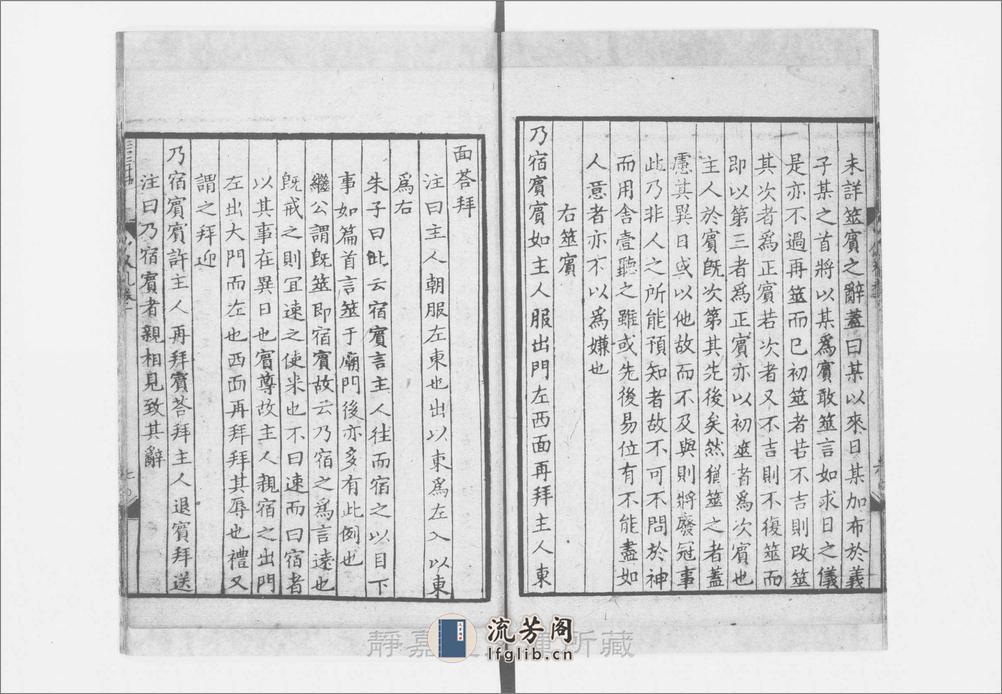 未詳筮賓之辭蓋曰某以來日某加布於義
子某之首將以某為賓敢筮言如求日之儀
是亦不過再筮而已初筮者若不吉則改筮
其次者為正賓若次者又不吉則不復筮而
即以第三者為正賓亦以初筮者為次賓也
主人於賓既次第其先後矣然猶筮之者蓋
慮其異日或以他故而不及與則將廢冠事
此乃非人之所能預知者故不可不問於神
而用舍壹聽之雖或先後易位有不能盡如
人意者亦不以為嫌也
右筮賓
乃宿賓賓如主人服出門左西面再拜主人東
面荅拜
注曰主人朝服左東也出以東為左入以東
為右
朱子曰此云宿賓言主人往而宿之以目下
事如篇首言筮于廟門後亦多有此例也
繼公謂既筮即宿賓故云乃宿之為言速也
既戒之則冝速之使來也不曰速而曰宿者
以其事在異日也賓尊故主人親宿之出門
左出大門而左也西面再拜拜其辱也禮又
謂之拜迎
乃宿賓賓許主人再拜賓荅拜主人退賓拜送
注曰乃宿賓者親相見致其辭
靜嘉
所藏
流芳阁
lfglib.cn